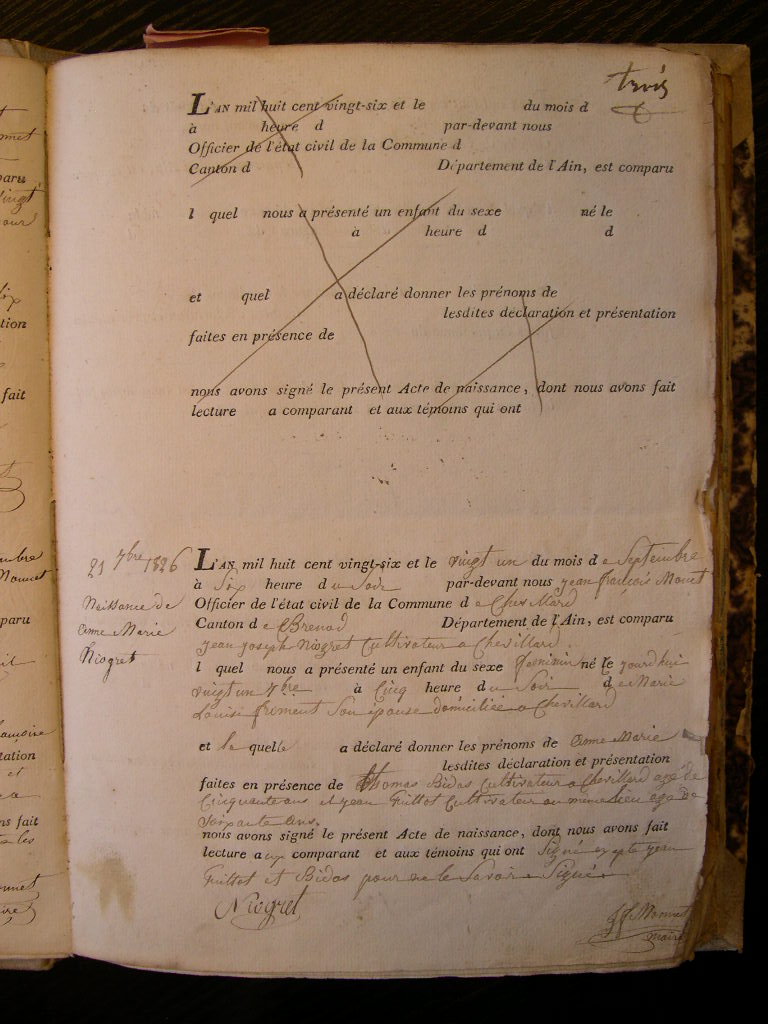 trois
L'AN mil huit cent vingt-six et le du mois d
à heure d par-devant nous
Officier de l'état civil de la Commune d
Canton d Département de l'Ain, est comparu
l quel nous a présenté un enfant du sexe né le
à heure d d
et quel a déclaré donner les prénoms de
lesdites déclaration et présentation
faites en présence de
nous avons signé le présent Acte de naissance, dont nous avons fait
lecture a comparant et aux témoins qui ont
21 7bre 1826
Naissance de
Anne Marie
Niogret
L'AN mil huit cent vingt-six et le vingt un du mois de Septembre
à Six heure du Soir par-devant nous jean françois Monet
Officier de l'état civil de la Commune de Chevillard
Canton de Brenod Département de l'Ain, est comparu
jean joseph Niogret Cultivateur a Chevillard
l quel nous a présenté un enfant du sexe feminin né le jourd'hui
vingt un 7bre à Cinq heure du Soir de Marie
Louise froment Son épouse domiciliée a Chevillard
et le quelle a déclaré donner les prénoms de Anne Marie
lesdites déclaration et présentation
faites en présence de thomas Bidos Cultivateur a Chevillard agé de
Cinquante ans et jean Guillot Cultivateur au meme lieu agé de
Soixante ans.
nous avons signé le présent Acte de naissance, dont nous avons fait
lecture aux comparant et aux témoins qui ont Signé exepte jean
Guillot et Bidos pour ne le Savoir Signé
Niogret
JF Monnet
maire